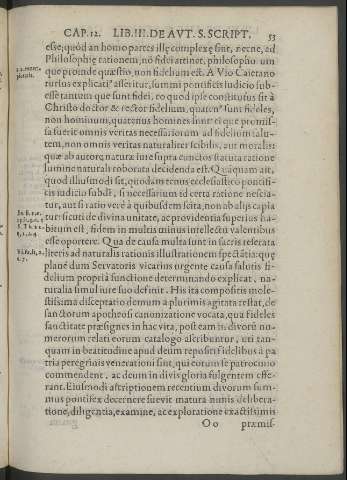 CAP. 12. LIB. III. DE AVT. S. SCRIPT. 53
esse, quòd an homo partes illę complexę sint, necne, ad
Philosophię rationem, nō fidei attinet, philosophorum
que proinde quæstio, non fidelium est. A Vio Caietano
rursus explicatiᵘ asseritur, summi pontificis iudicio sub-
esse tantum quæ sunt fidei, eo quod ipse constitutus sit à
Christo doctor & rector fidelium, quatenus sunt fideles,
non hominum, quatenus homines sunt: ei que promis-
sa fuerit omnis veritas necessariorum ad fidelium salu-
tem, non omnis veritas naturaliter scibilis, aut moralis:
quæ ab autore natura iure supra cunctos statuta ratione
lumine naturali roborata decidenda est. Quāquam ait,
quod illiusmodi sit, quodam tenus ecclesiastico pontifi-
cis iudicio subdi, si necessarium ad certa ratione nescia-
tur, aut si ratio vere à quibusdem scita, non ab alijs capia
tur: sicuti de divina unitate, ac providentia superius ha-
bitum est, fidem in multis minus intellectu valentibus
esse oportere. Qua de causa multa sunt in sacris reserata
literis ad naturalis rationis illustrationem spectātia: quę
planè dum Servatoris vicarius urgente causa salutis fi-
delium propria functione determinando explicat, na-
turalia simul iure suo definit. His ita compositis mole-
stissima disceptatio demum à plurimis agitata restat, de
sanctorum apotheosi canonizatione vocata, qua fideles
sanctitate præsignes in hac vita, post eam in divorū nu-
merorum relati eorum catalogo ascribuntur, uti tan-
quam in beatitudine apud deum repositi fidelibus à pa
tria peregrinis venerationi sint, qui eorum se patrocinio
commendent, ac deum in divis gloria fulgentem effe-
rant. Eiusmodi ascriptionem recentium divorum sum-
mus pontifex decernere suevit matura nimis delibera-
tione, diligentia, examine, ac exploratione exactissimis
Oo præmis-